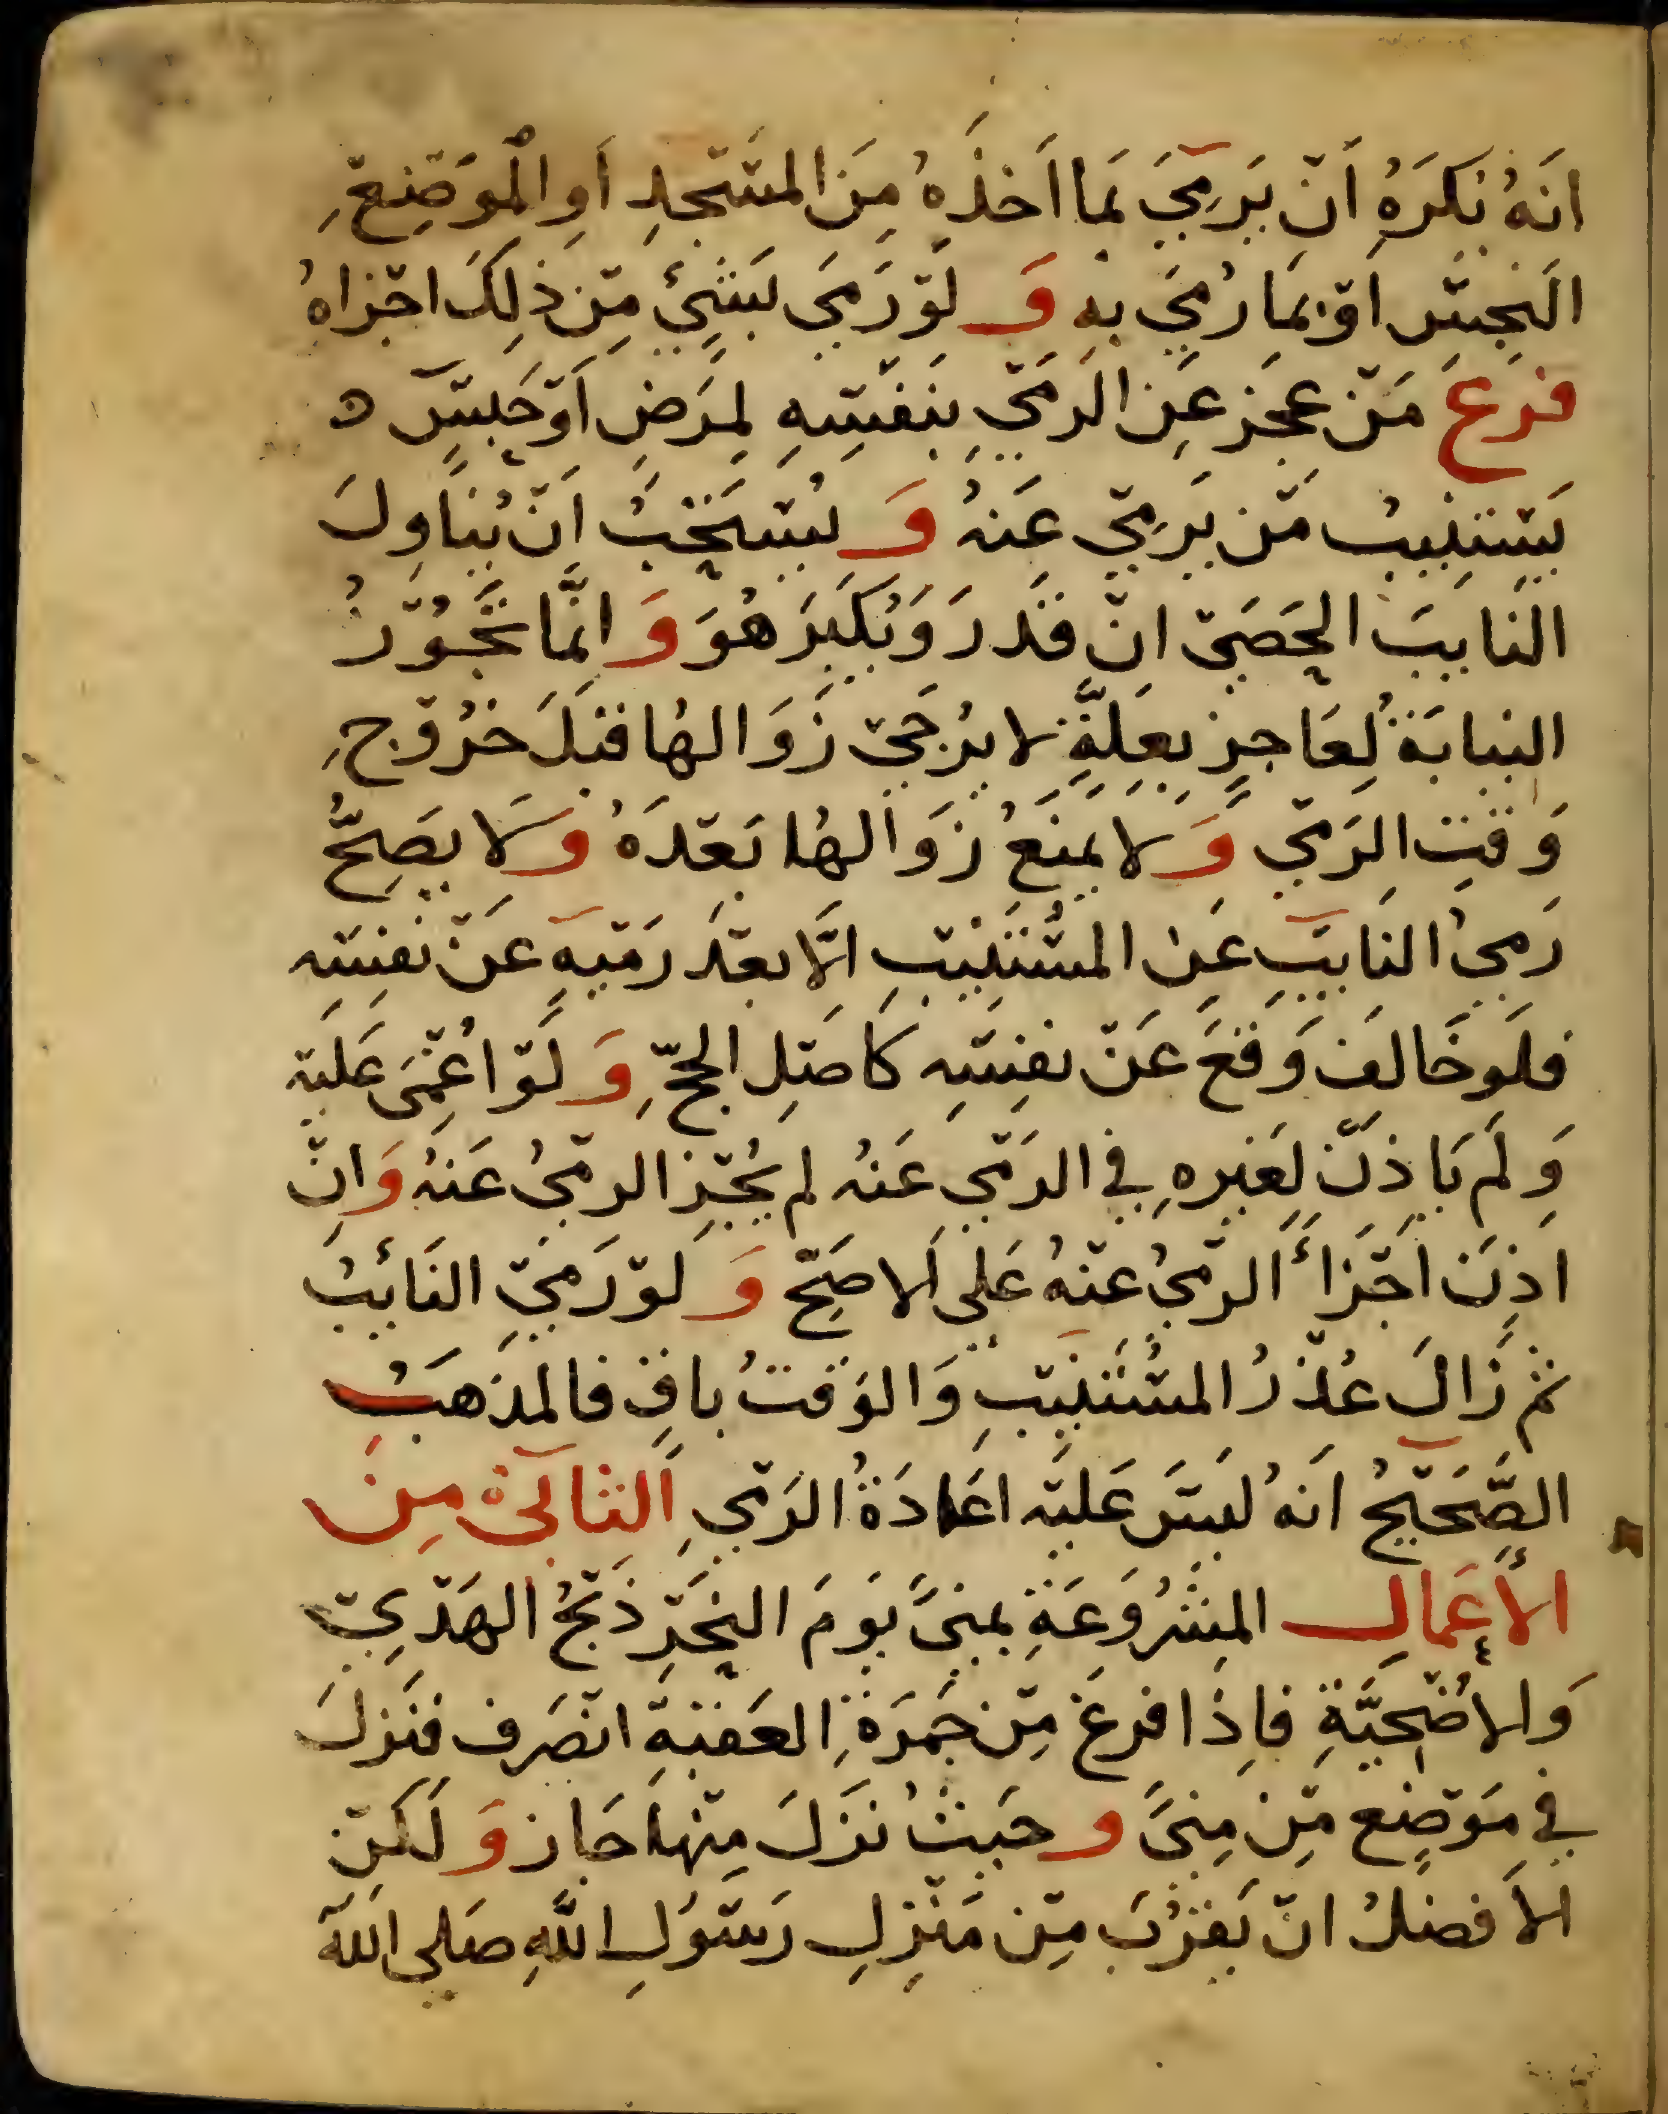 انَهُ نكرَهُ أنْ يَرمِيَ بمَا اَخذَهُ مِنَ المسْجدِ اَوِ الْموَضِعِ
النَجِسْ اَوْ بمَا رُمِيَ بهِ وَ لَوْ رَمَي بشَئٍ مِنْ ذلِكَ اجْزاهُ
فرَع مَنْ عجَز عَنِ الرَمْيِ بنَفْسِهِ لِمرَضٍ اَوْ حَبسٍْ ه
يَسْتنِيبُ مَنْ يَرمِيْ عَنهُ وَ يُسْتحَبُ اَنْ يُنَاوِلَ
النَايبَ الحَصَيْ انْ قدَرَ وَيُكَبرَ هُوَ وَ انمَّا تجَُوْزُ
النيابَة لعَاجِزٍ بعِلةٍَّ لا يرُجَيْ زَوَالهُا قبْلَ خرُوْجِ
وَقتِ الرَمْيِ وَ لا يمنَعُ زَوَالهُا بَعْدَهُ وَ لَا يصَِحُّ
رَميُ النَايبَِ عَنِ المسُْتنِيْبِ الَّا بعْدَ رَمْيهِ عَنْ نفِسْهِ
فلَو خَالفَ وَقعَ عَنْ نفِسْهِ كَاصْلِ الحجِّ وَ لَوْ اغُمِيَ عَليْهِ
وَ لَمْ يَاذِنْ لِغَيرهِ في الرَمْيِ عَنهُ لم يُجْزِ الرمْيُ عَنهُ وَ انْ
اذِنَ اَجْزَأَ الرّمْيُ عنْهُ عَلي الاصَحِّ وَ لوْ رَميْ النَائبُ
ثمْ زَالَ عُذْرُ المسُْتنِيْبِ وَ الوَقتُ باقٍ فالمَذهَبُ
الصَّحَيْحُ انَهُ ليَسَْ عَليْهِ اعَادَةُ الرَمْيِ الَثانَيْ مِنَ
الأعَمالِ المشرُوَعَةِ بمِنىً يوَمَ النحَّرِ ذَبْحُ الهَدْيِ
وَ الاضُحِيَّةِ فاِذَا فرغَ مِنْ جَمَرَةِ العَقبَةِ انصَرَف فنَزلَ
في مَوْضِعٍ مِنْ مِنىً و حَيثُ نزَلَ مِنْهَا جَازَ وَ لَكنْ
الاَفضلُ انْ يَقرُبَ مِنْ مَنْزِلِ رَسْوُلِ اللهِ صَلي اللهُ